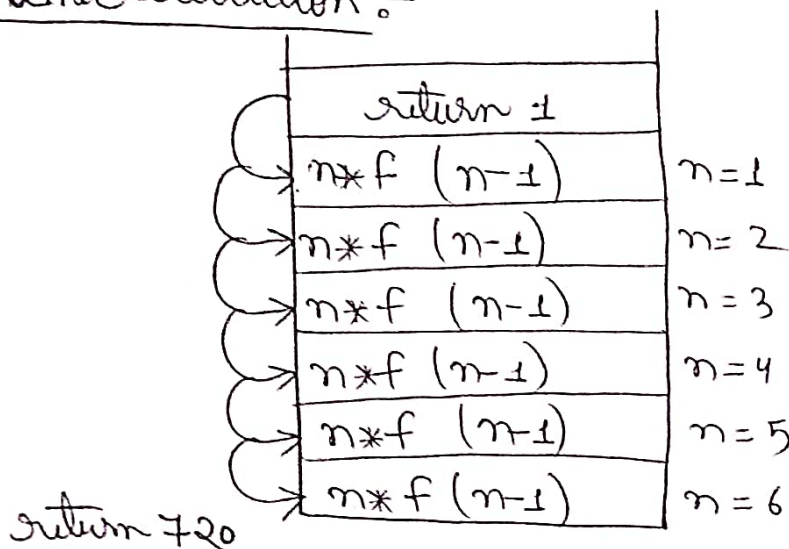 return 1
n*f (n-1) n=1
n*f (n-1) n=2
n*f (n-1) n=3
n*f (n-1) n=4
n*f (n-1) n=5
n*f (n-1) n=6
return 720